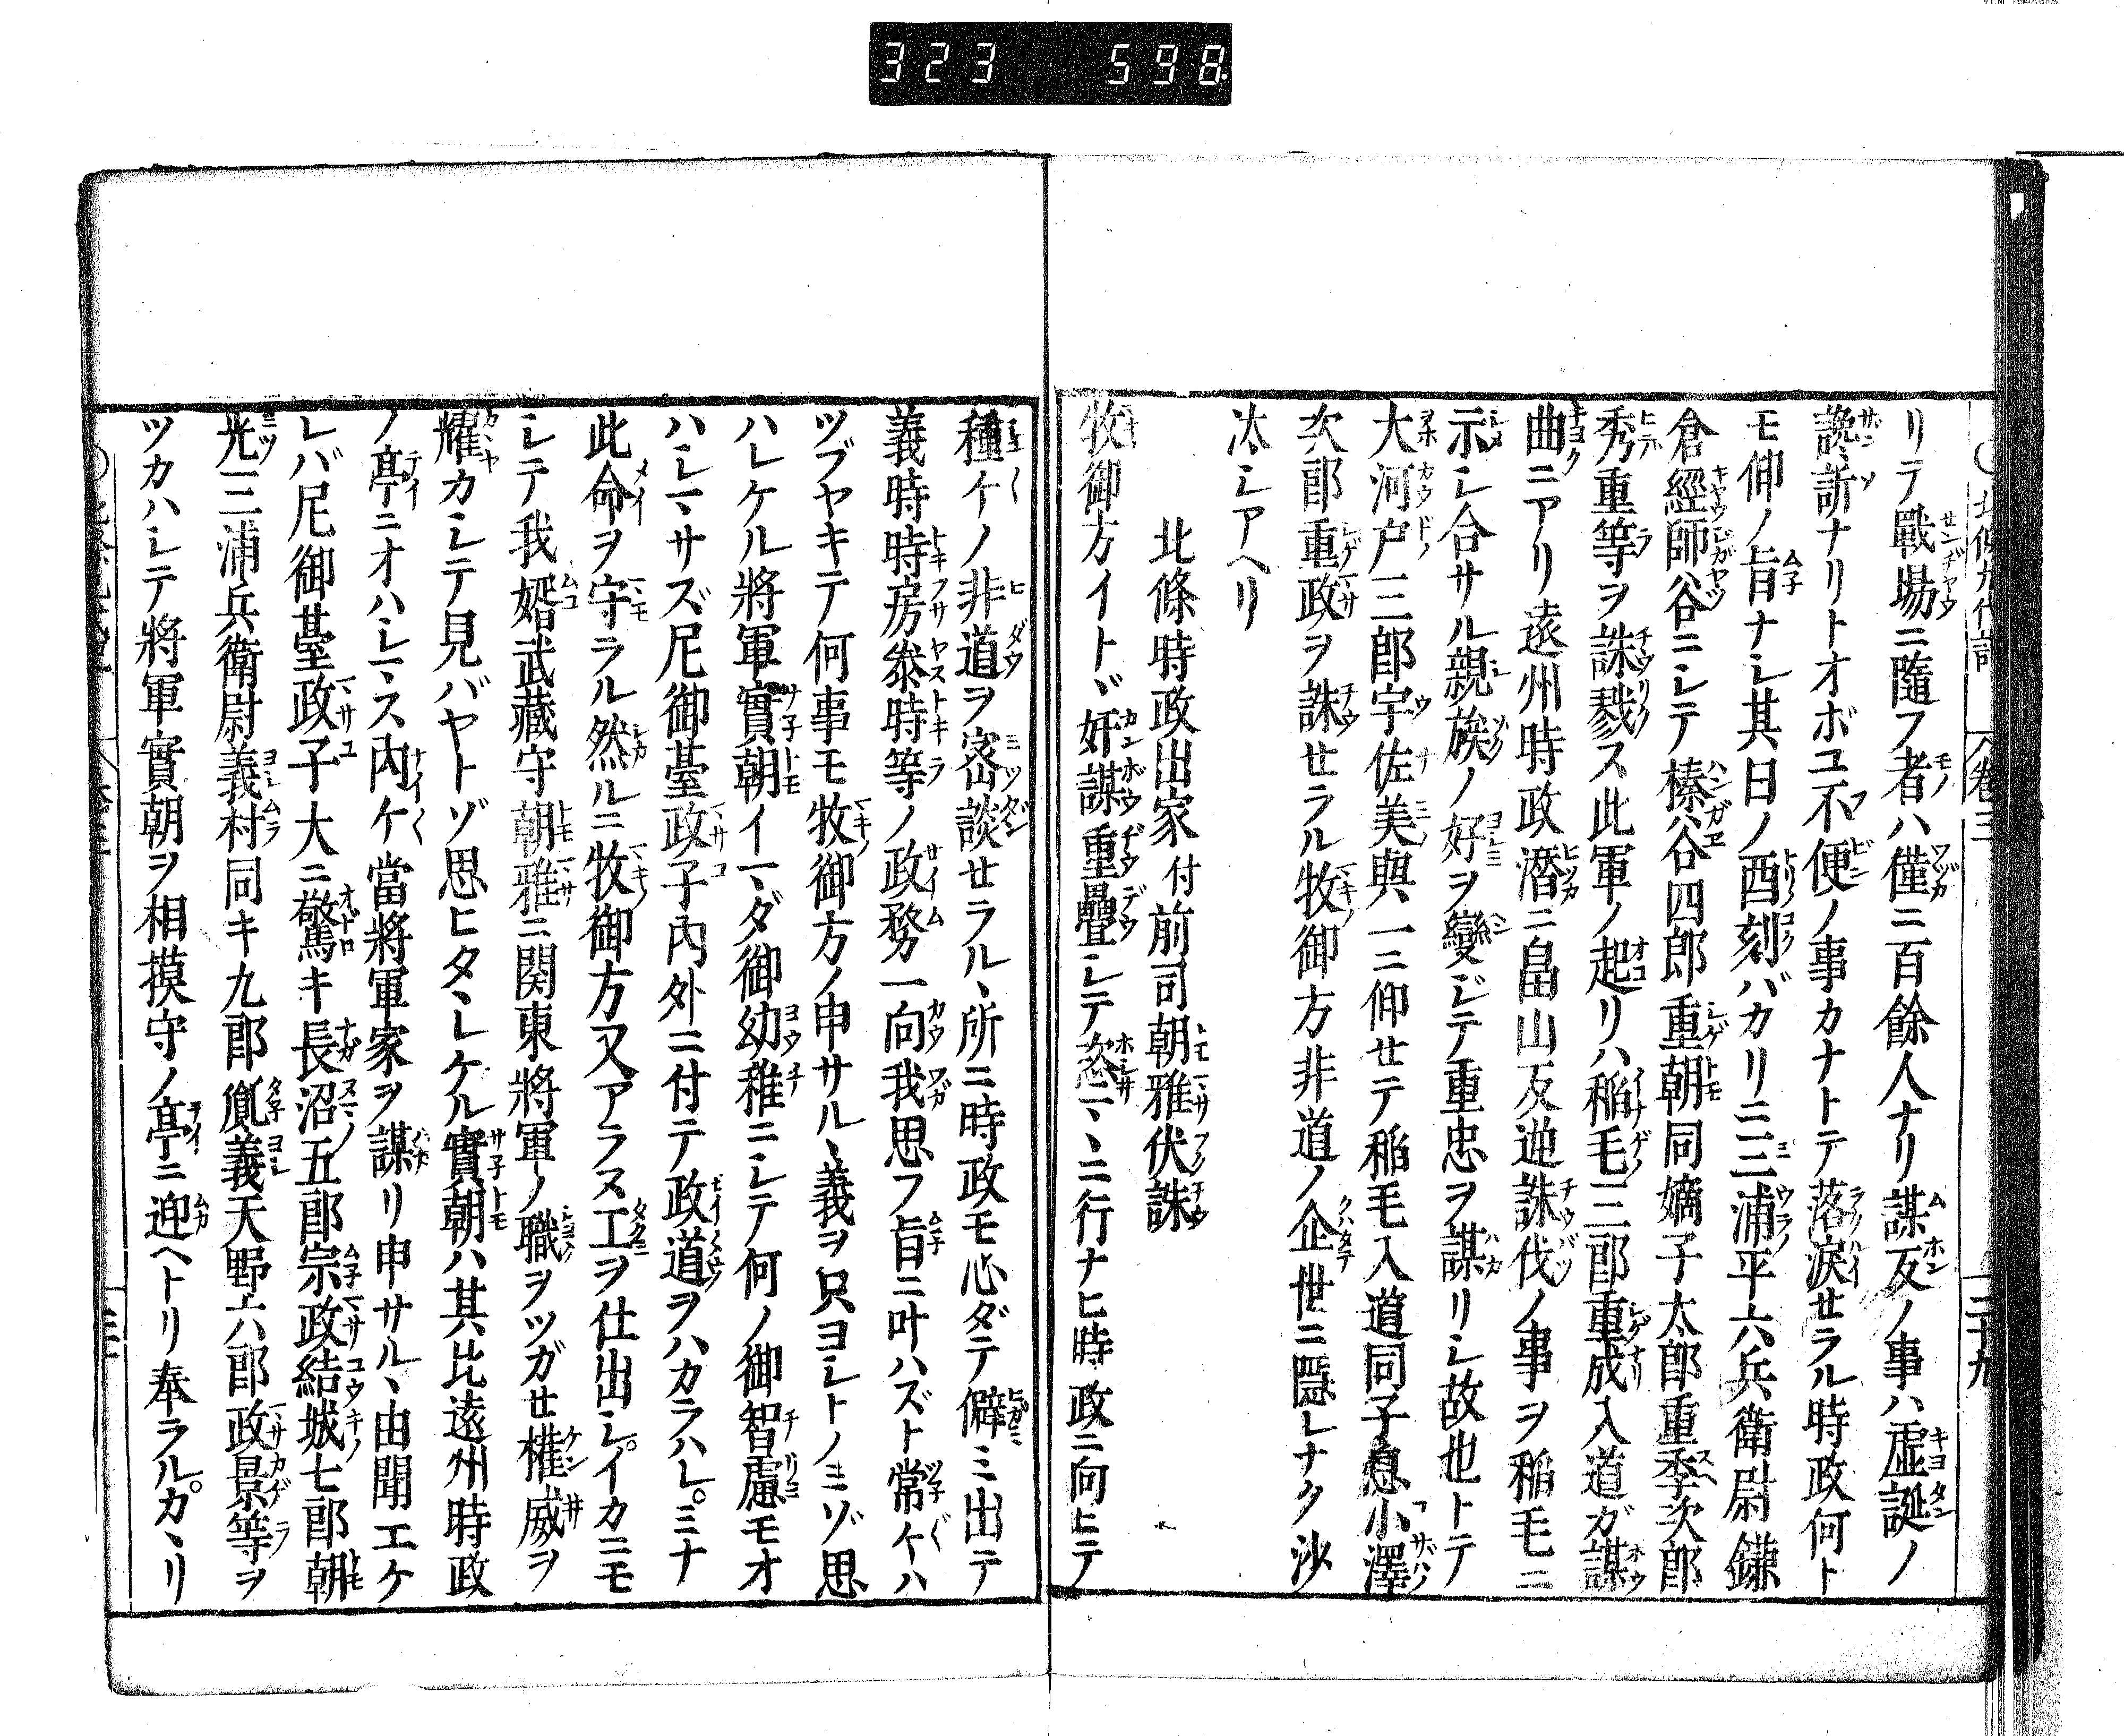 323 598
北條九代記 卷三 二十九
リテ戰場ニ隨フ者ハ僅ニ百餘人ナリ謀反ノ事ハ虛誕ノ
讒訴ナリトオボユ不便ノ事カナトテ落淚せラル時政何ト
モ仰ノ旨ナシ其日ノ酉刻バカリニ三浦平六兵衛尉鎌
倉經師谷ニシテ榛谷四郎重朝同嫡子太郎重季次郎
秀重等ヲ誅戮ス此軍ノ起リハ稲毛三郎重成入道ガ謀
曲ニアリ遠州時政潛ニ畠山反逆誅伐ノ事ヲ稲毛ニ
示シ合サル親族ノ好ヲ變ジテ重忠ヲ謀リシ故也トテ
大河戸三郎宇佐美與一ニ仰せテ稲毛入道同子息小澤
次郎重政ヲ誅せラル牧御方非道ノ企世ニ隱レナク沙
汰シアヘリ
北條時政出家付前司朝雅伏誅
牧御方イトヾ奸謀重疊シテ恣マヽニ行ナヒ時政ニ向ヒテ
種々ノ非道ヲ密談せラルヽ所ニ時政モ心ダテ僻ミ出テ
義時時房泰時等ノ政務一向我思フ旨ニ叶ハズト常々ハ
ツブヤキテ何事モ牧御方ノ申サルヽ義ヲ只ヨシトノミゾ思
ハレケル將軍實朝イマヽダ御幼稚ニシテ何ノ御智慮モオ
ハシマサズ尼御臺政子內外ニ付テ政道ヲハカラハレ。ミナ
此命ヲ守ラル然ルニ牧御方又アラヌ工ヲ仕出シ。イカニモ
シテ我婿武藏守朝雅ニ関東將軍ノ職ヲツガせ權威ヲ
耀カシテ見バヤトゾ思ヒタヽレケル實朝ハ其比遠州時政
ノ亭ニオハシマヽス內々當將軍家ヲ謀リ申サルヽ由聞エケ
レバ尼御臺政子大ニ驚キ長沼五郎宗政結城七郎朝
光三浦兵衛尉義村同キ九郎胤義天野六郎政景等ヲ
ツカハシテ將軍實朝ヲ相摸守ノ亭ニ迎ヘトリ奉ラル。カヽリ